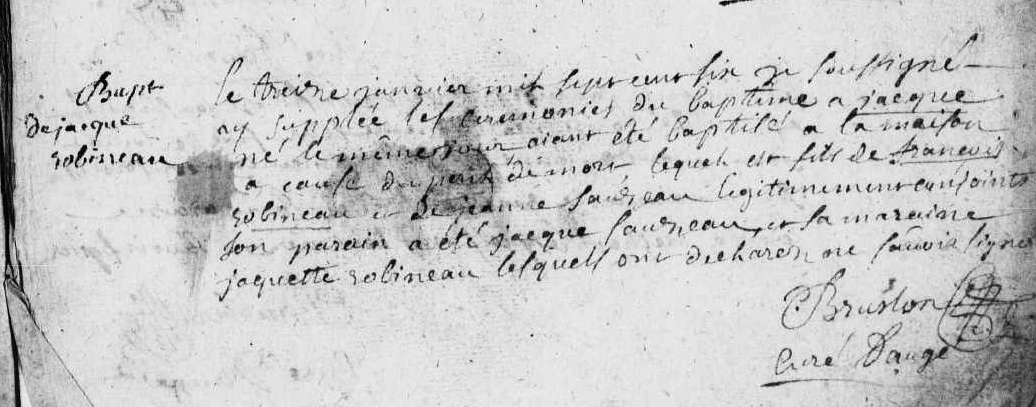 Bapt
de jacque
robineau
le treisne janvier mil sept cent six je soussigné
ay supplée les ceremonies du baptême a jacque
né le même jour aiant été baptisé a la maison
a cause du peril de mort lequel est fils de francois
robineau et de jeanne saudreau legitimement conjoints
son parain a été jacque saudreau et sa maraine
jaquette robineau lesquels ont declaré ne sâvoir signer
Bruslon
Curé D'augé